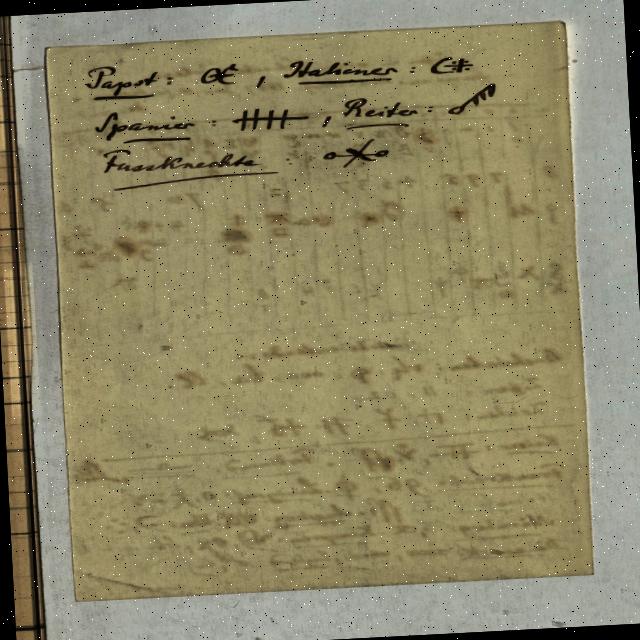 Papst : , Italiener :
Spanier : , Reiter :
Fussknechte :